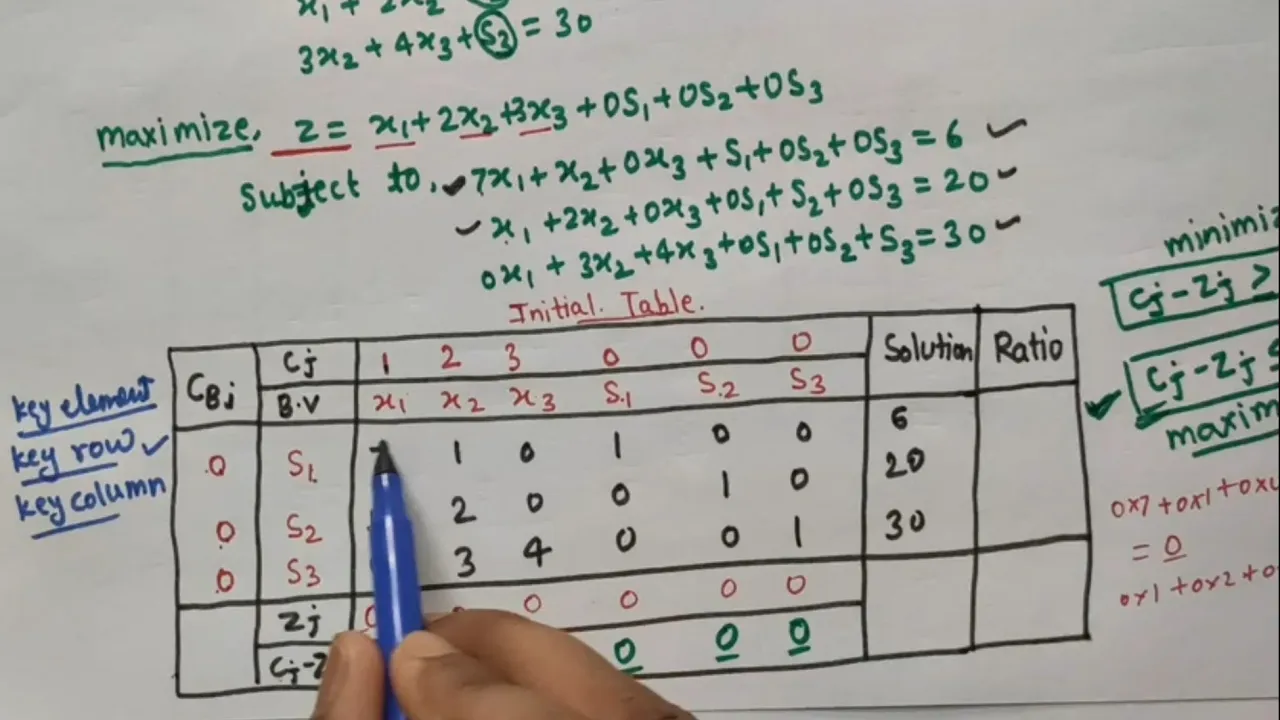 x₁ + 2x₂
3x₂ + 4x₃ + S₃ = 30
maximize, Z = x₁ + 2x₂ + 3x₃ + 0S₁ + 0S₂ + 0S₃
Subject to, 7x₁ + x₂ + 0x₃ + S₁ + 0S₂ + 0S₃ = 6
x₁ + 2x₂ + 0x₃ + 0S₁ + S₂ + 0S₃ = 20
0x₁ + 3x₂ + 4x₃ + 0S₁ + 0S₂ + S₃ = 30
Initial Table.
CBj Cj 1 2 3 0 0 0 Solution Ratio
B.V x₁ x₂ x₃ S.₁ S.₂ S₃
0 S₁ 1 0 1 0 0 6
0 S₂ 2 0 0 1 0 20
0 S₃ 3 4 0 0 1 30
Zj 0 0 0 0 0
Cj-Z 0 0 0
key element
key row
key column
Cj - Zj >
Cj - Zj ≤
0x7 + 0x1 +
= 0
0x1 + 0x2 +